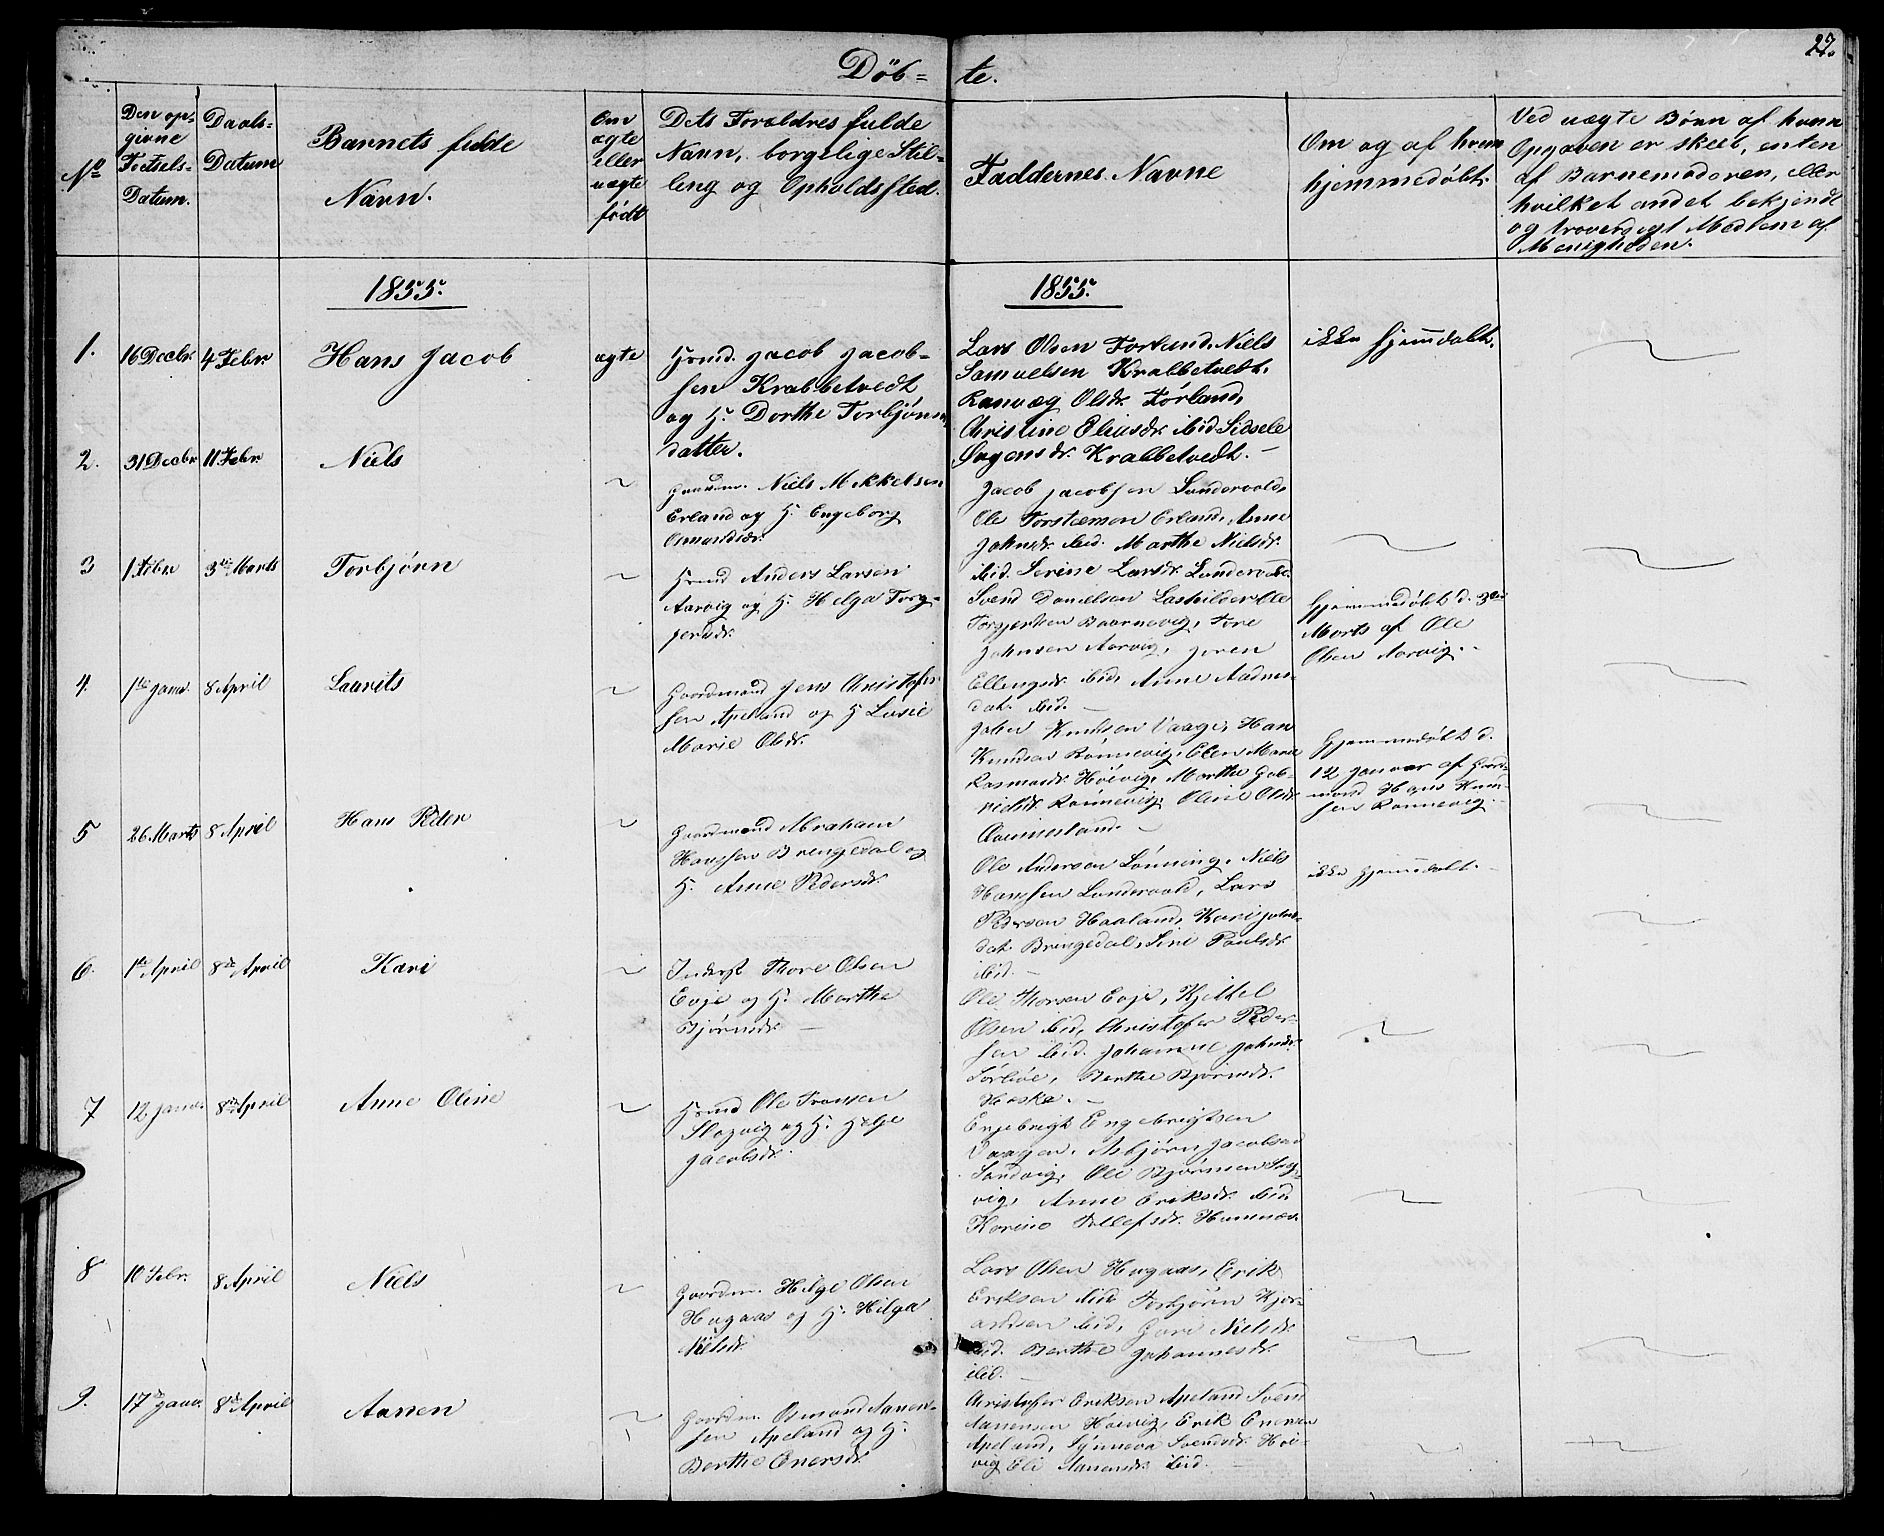 27.
Døb-
te.
No
Den op-
givne
Fødsels-
Datum.
Daabs-
Datum
Barnets fulde
Navn.
Om
ægte
eller
uægte
født
Dets Foreldres fulde
Navn, borgelige Stil-
ling og Opholdssted.
Faddernes Navne
Om og af hvem
hjemmedøbt.
Ved uægte Børn af hvem
Opgaven er skeet, enten
af Barnemoderen, eller
hvilket andet bekjendt
og troværdigt Medlem af
Menigheden.
1855.
1855.
1.
16 Decbr
4 Febr.
Hans Jacob
ægte
Hmd. Jacob Jacob-
sen Krabbetvedt
og H. Dorthe Torbjørns
datter.
Lars Olsen Førland, Niels
Samuelsen Krabbetvedt,
Ranvæg Olsdr. Førland,
Christine Eliasdr. ibid. Sidsele
Krabbetvedt.
ikke hjemdøbt.
2.
31 Decbr
11 Febr
Niels
Gaardm. Niels Mikkelsen
Erland og H. Engeborg
Osmundsdr.
Jacob Jacobsen Sundervold,
Ole Torstensen Erland, Anne
Johnsdr. ibid. Marthe Nielsdr.
ibid. Serine Larsdr.
3
1 Febr
3die Marts
Torbjørn
Hmd Anders Larsen
Aarvig og H. Helga Torg-
jersdr.
Svend Danielsen Ole
Torgjersen Baarnevig, Tore
Johnsen Aarvig, Joren
Ellingsdr. ibid. Anne Aadnes-
dat. ibid.
Hjemmedøbt d. 3die
Marts af Ole
Olsen Aarvig.
4.
1ste Janr.
8 April
Laurits
Gaardmand Jens Christofer
sen Apeland og H Lusie
Marie Olsdr.
John Knudsen Vaage, Hans
Knudsen Rønnevig, Elen Marie
Rasmusdr. Høievig, Marthe Gab-
rielsdr. Rønnevig, Oline Olsdr
Hjemmedøbt d.
12 Januar af Gaard-
mand Hans Knud-
sen Rønnevig.
5
26 Marts
8 April
Hans Peder
Gaardmand Abraham
Hansen Bringedal og
H. Anne Pedersdr.
Ole Andersen Lønning, Niels
Hansen Sundervold, Lars
Pedersen Haaland, Kari Johns-
dat. Bringedal, Siri Paulsdr.
ibid.
ikke hjemmedøbt.
6.
1ste April
8de April
Kari
Inderst Thore Olsen
Evje og H. Marthe
Bjørnsdr.
Ole Thorsen Evje, Kjettel
Olsen ibid, Christofer Peder-
sen ibid. Johanne Johnsdr.
Sørbøe, Berthe Bjørnsdr.
7
12 Janr.
8de April
Anne Oline
Hmd Ole Tronsen
Slogvig og H. Helje
Jacobsdr.
Enjebrigt Engebrigtsen
Vaagen, Asbjørn Jacobsen
Sandvig, Ole Bjørnsen Slog-
vig, Anne Eriksdr. ibid,
Korine Tollefsdr. Hamnæs.
8
10 Febr.
8 April
Niels
Gaardm. Helge Olsen
Hagaas og H. Helga
Nielsdr.
Lars Olsen Hagaas, Erik
Eriksen ibid. Torbjørn Kjør-
andsen ibid, Guri Nielsdr.
ibid. Berthe Johannesdr.
ibid.
9.
17de Janr.
8de April
Aanen
Gaardm. Osmund Aanen-
sen Apeland og H.
Berthe Enersdr.
Christofer Eriksen Apeland Svend
Aanensen Høievig, Erik Enersen
Apeland, Synneva Svendsdr. Høi-
vig Eli Aanensdr. ibid.